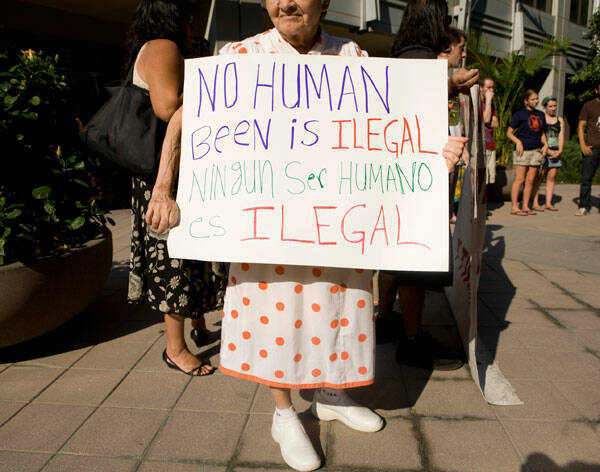 NO HUMAN
BEEN iS ILEGAL
NiNgUN SER HUMANO
es ILEGAL